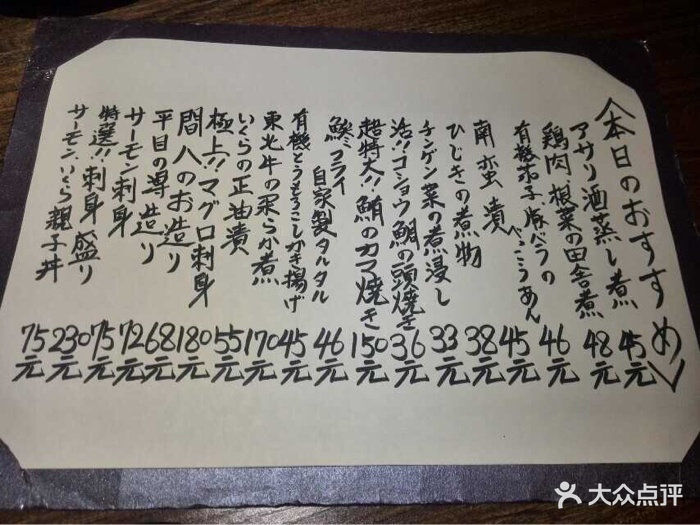 <本日のおすすめ>
アサリ酒蒸し煮 45元
鶏肉、根菜の田舎煮 48元
有機茄子、豚バラの
べっこうあん 46元
南蛮漬 45元
ひじきの煮物 38元
チンゲン菜の煮浸し 33元
活!!コショウ鯛の頭焼き 36元
超特大!!鮪のカマ焼き 150元
鯵フライ
自家製タルタル 46元
有機とうもろこしかき揚げ 45元
東北牛の柔らか煮 170元
いくらの正油漬 55元
極上!!マグロ刺身 180元
間八のお造り 68元
平目の薄造り 72元
サーモン刺身 75元
特選!!刺身盛り 230元
サーモン、いくら親子丼 75元
大众点评